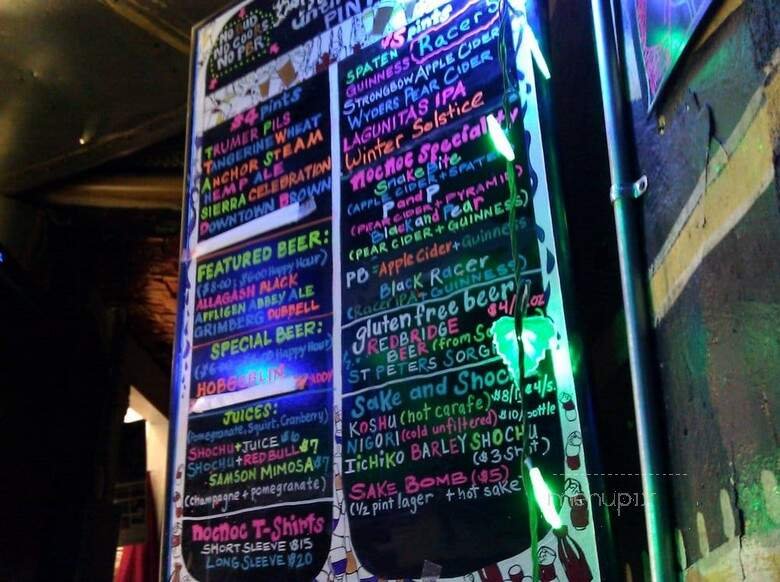 NO ID
NO
NO
PINT
$4 pints
TRUMER PILS
TANGERINE WHEAT
ANCHOR STEAM
HEMP ALE
SIERRA CELEBRATION
DOWNTOWN BROWN
FEATURED BEER:
($8.00; $6.00 Happy Hour)
ALLAGASH BLACK
AFFLIGEN ABBEY ALE
GRIMBERG DUBBELL
SPECIAL BEER:
Happy Hour)
HOBGOBLIN
JUICES:
(Pomegranate, Squirt, Cranberry)
SHOCHU+JUICE $6
SHOCHU+REDBULL $7
SAMSON MIMOSA $7
(champagne + pomegranate)
nocnoc T-Shirts
SHORT SLEEVE $15
LONG SLEEVE $20
$5 pints
SPATEN
GUINNESS Racer 5
STRONGBOW APPLE CIDER
WYDERS PEAR CIDER
LAGUNITAS IPA
Winter Solstice
nocnoc specialty
Snake Bite
(APPLE CIDER + SPATEN
P and P
(PEAR CIDER + PYRAMID
Black and Pear
(PEAR CIDER + GUINNESS)
PB = Apple Cider + Guinness
Black Racer
(Racer IPA + GUINNESS)
gluten free beer
REDBRIDGE
BEER (from
ST PETERS
Sake and
KOSHU (hot carafe) $8/
NIGORI (cold unfiltered) $10/bottle
IICHIKO BARLEY SHOCHU
($3 Shot)
SAKE BOMB ($5)
(1/2 pint lager + hot sake
menupix